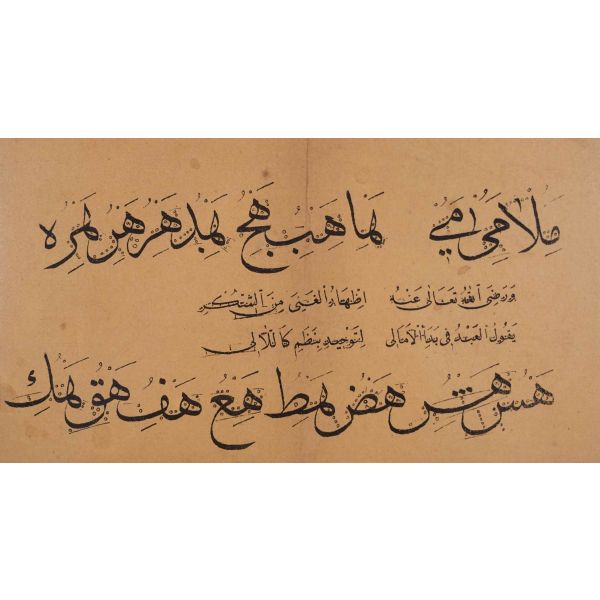 ملا مى مي ها هب هج هد هر
ورضى الله تعالى عنه اظهار الغنى من الشكر
يقول العبد فى بدأ الامالى لتوحيد بنظم كاللالى
هس هص هط هع هف هق هك